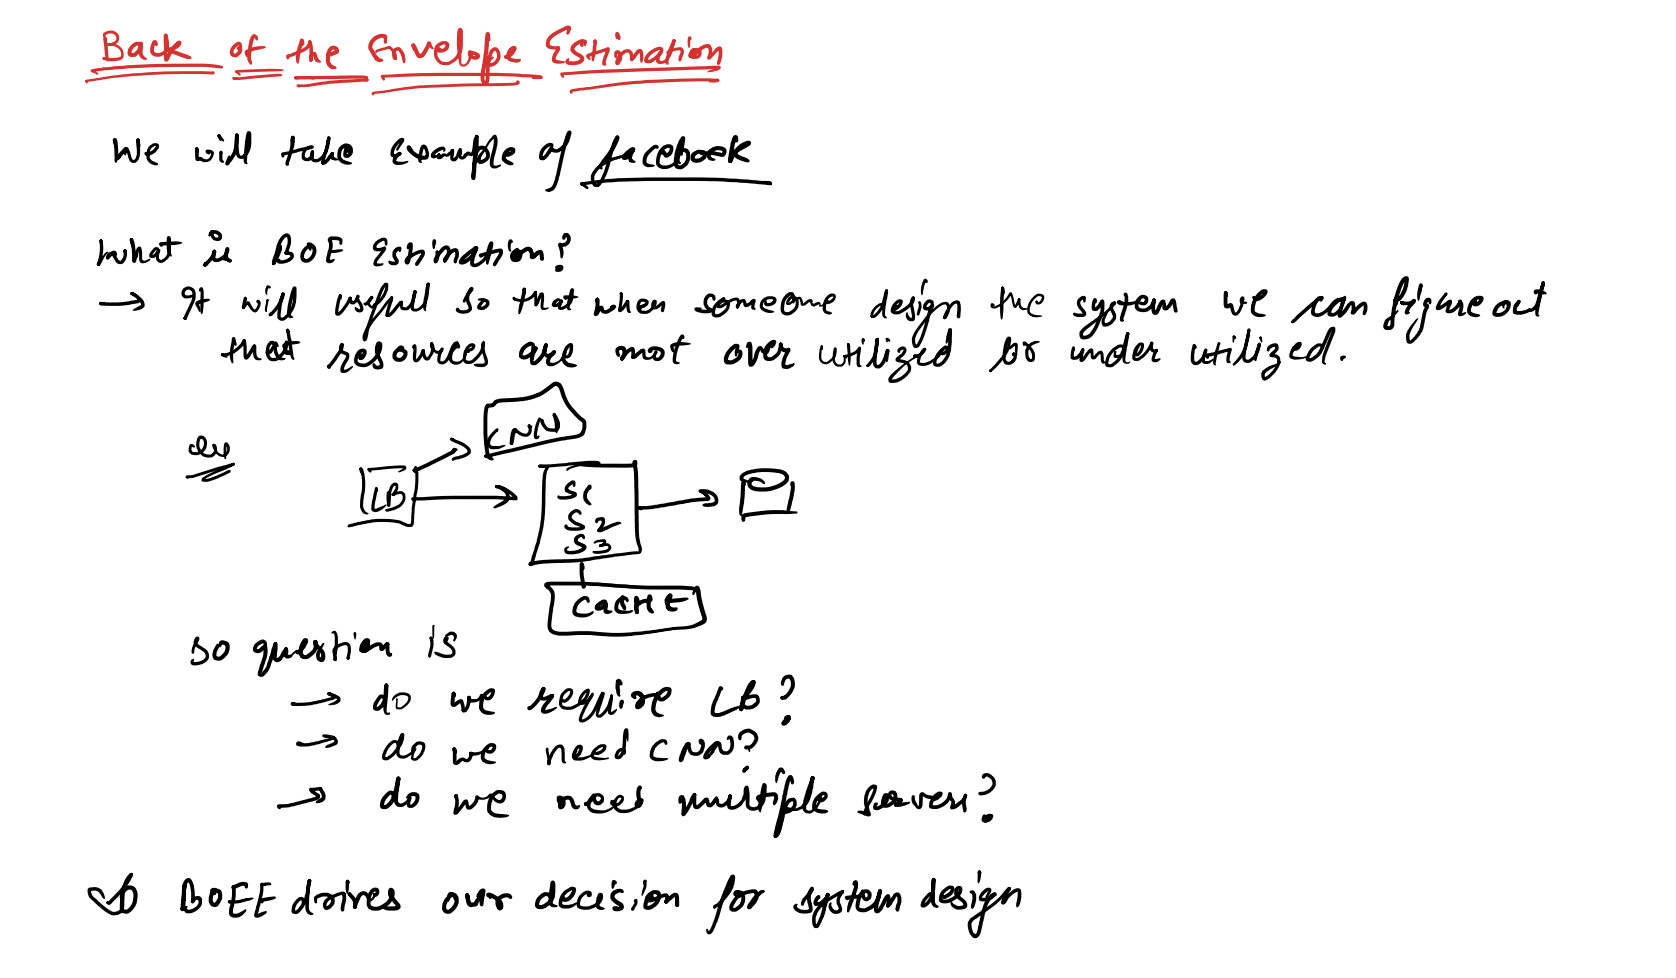 Back of the Envelope Estimation
We will take example of facebook
What is BOE Estimation?
→ It will usefull so that when someone design the system we can figure out
that resources are not over utilized or under utilized.
CNN
LB
S1
S2
S3
CACHE
so question is
→ do we require LB?
→ do we need CNN?
→ do we need multiple servers?
BOEE drives our decision for system design